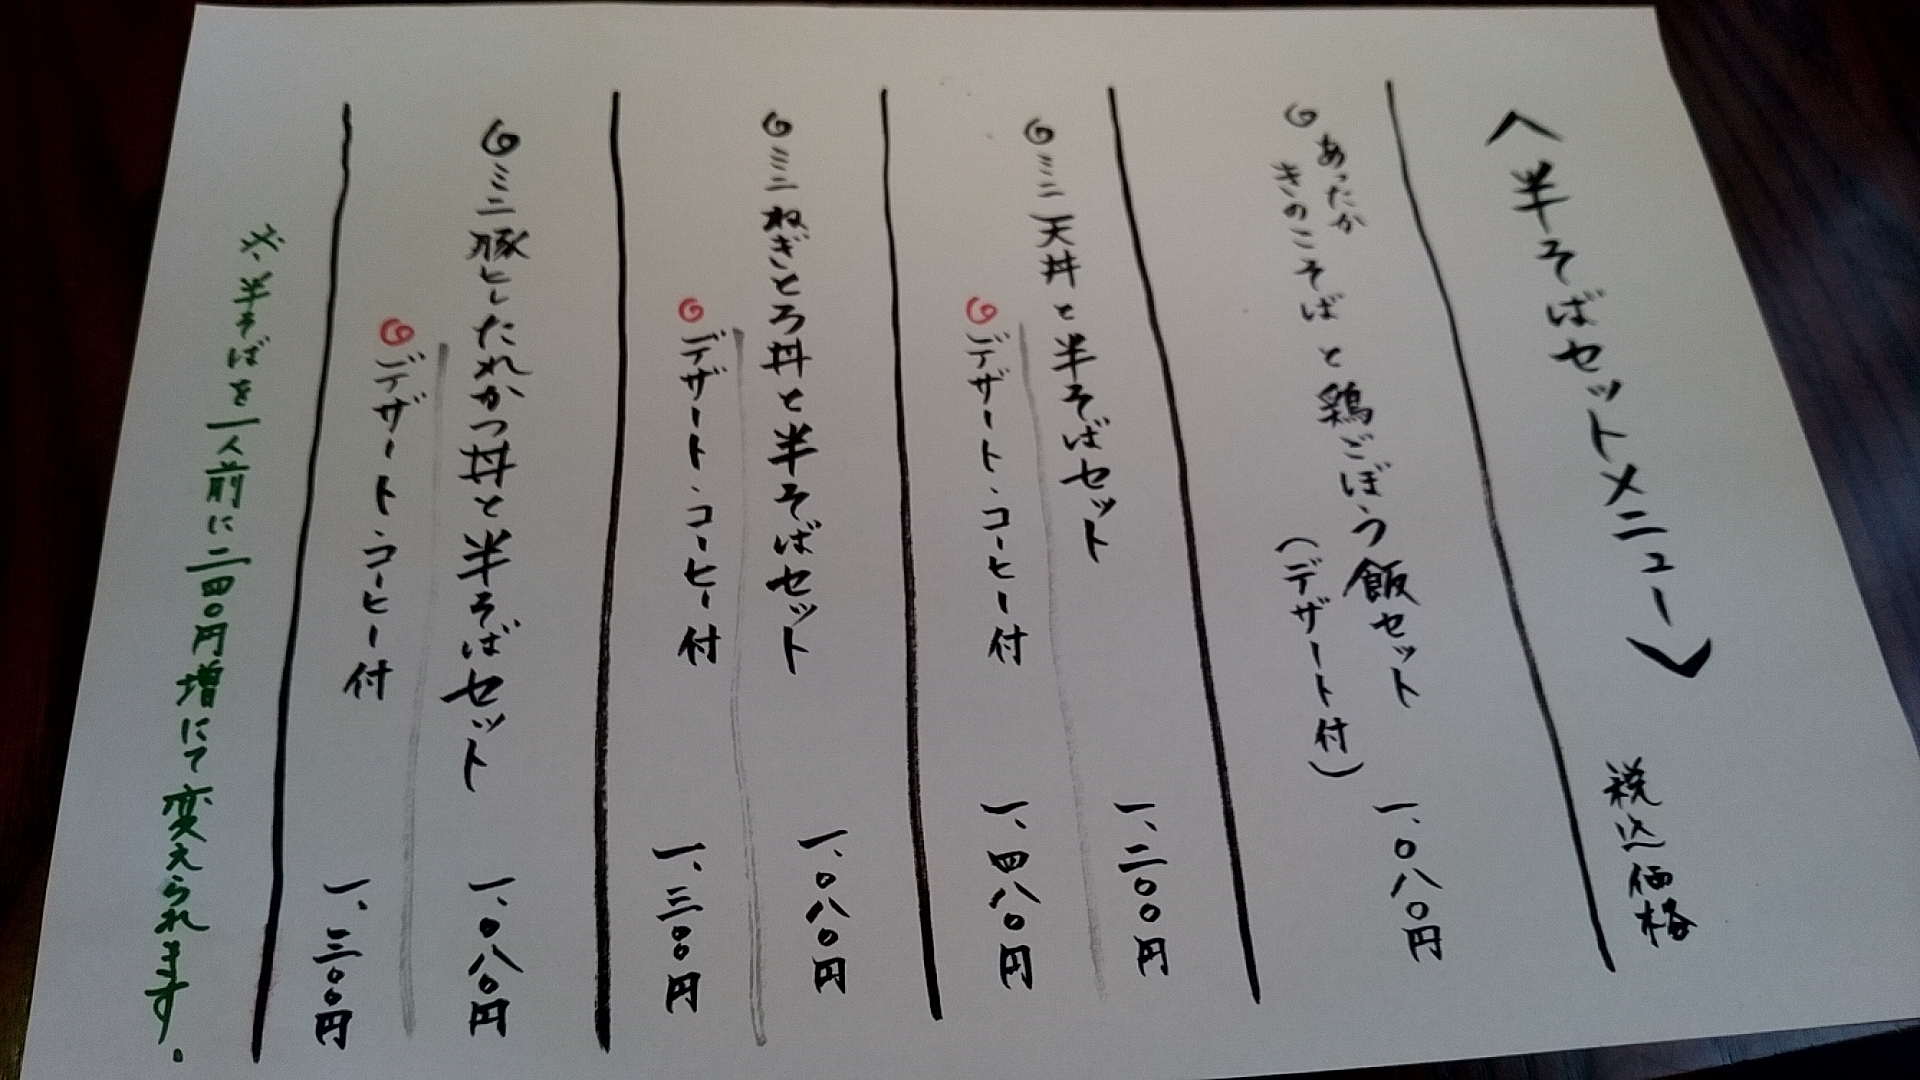 〈半そばセットメニュー〉
税込価格
あったか
きのこそばと鶏ごぼう飯セット
(デザート付)
一、〇八〇円
ミニ天丼と半そばセット
一、二〇〇円
デザート、コーヒー付
一、四八〇円
ミニねぎとろ丼と半そばセット
一、〇八〇円
デザート、コーヒー付
一、三〇〇円
ミニ豚ヒレたれかつ丼と半そばセット
一、〇八〇円
デザート、コーヒー付
一、三〇〇円
※、半そばを一人前に二四〇円増にて変えられます。